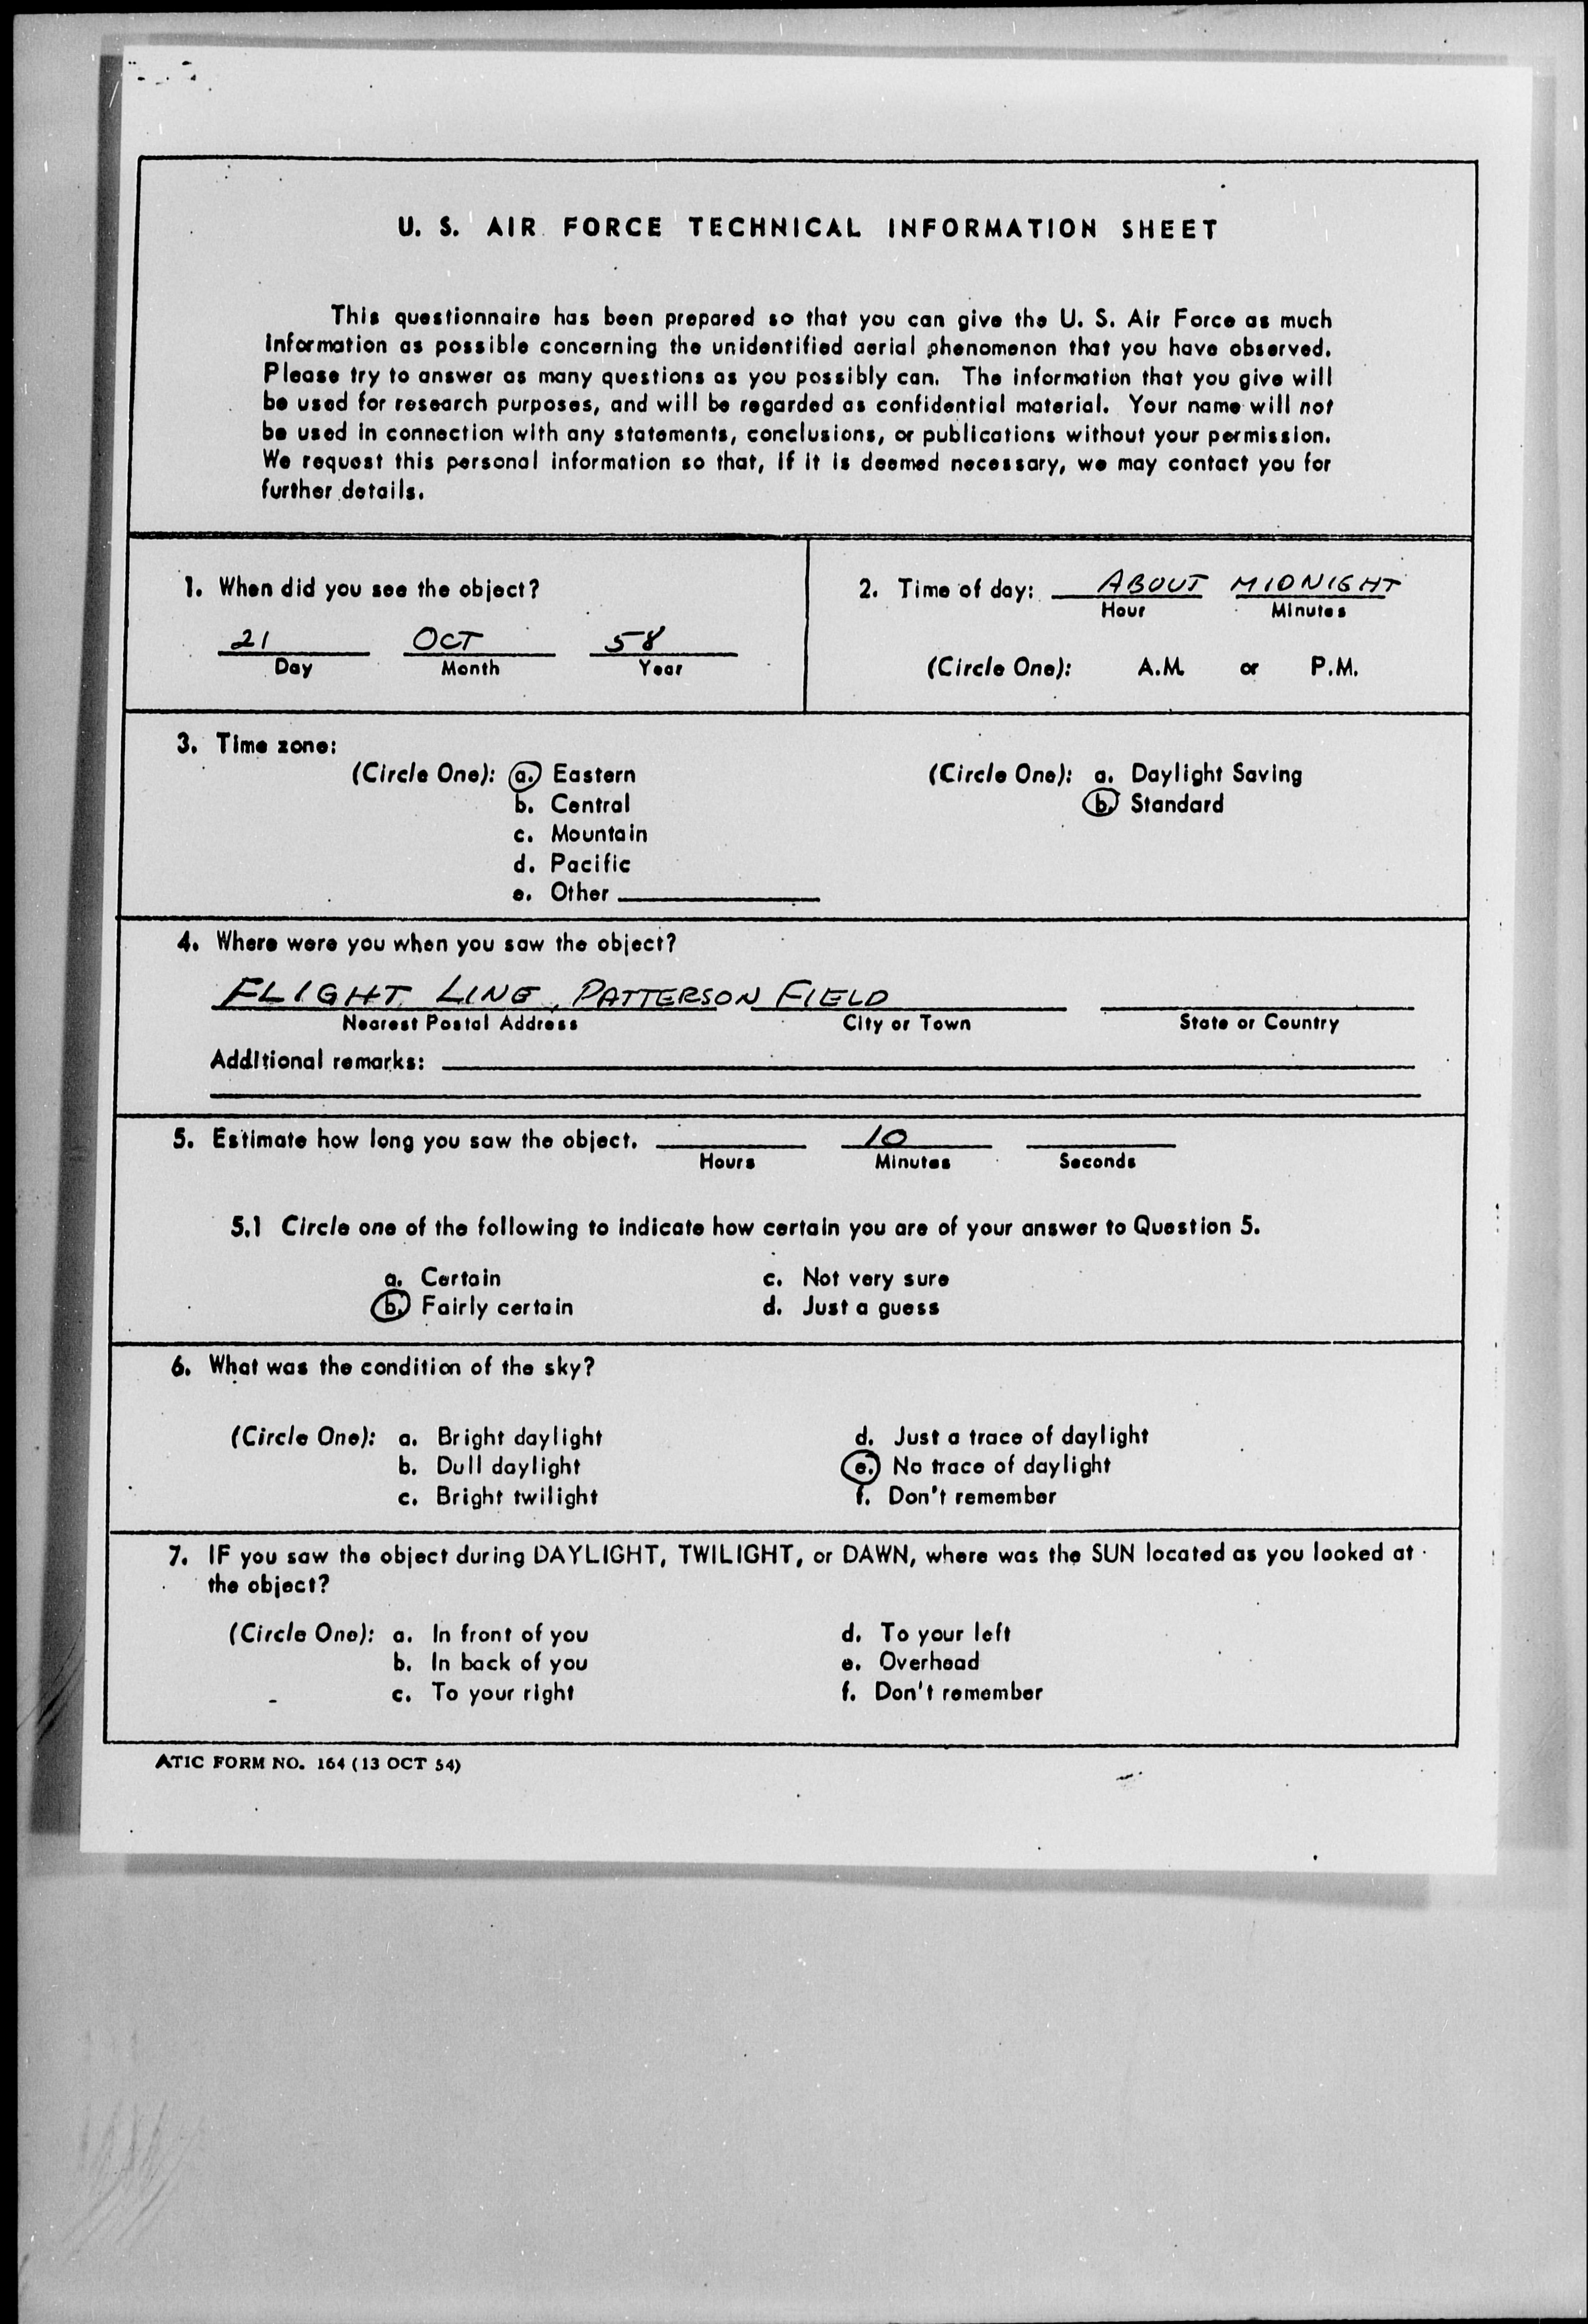 U. S. AIR FORCE TECHNICAL INFORMATION SHEET
This questionnaire has been prepared so that you can give the U. S. Air Force as much
information as possible concerning the unidentified aerial phenomenon that you have observed.
Please try to answer as many questions as you possibly can. The information that you give will
be used for research purposes, and will be regarded as confidential material. Your name will not
be used in connection with any statements, conclusions, or publications without your permission.
We request this personal information so that, if it is deemed necessary, we may contact you for
further details.
1. When did you see the object?
21 OCT 58
Day Month Year
2. Time of day: ABOUT MIDNIGHT
Hour Minutes
(Circle One): A.M. or P.M.
3. Time zone:
(Circle One): a. Eastern
b. Central
c. Mountain
d. Pacific
e. Other
(Circle One): a. Daylight Saving
b. Standard
4. Where were you when you saw the object?
FLIGHT LINE, PATTERSON FIELD
Nearest Postal Address City or Town State or Country
Additional remarks:
5. Estimate how long you saw the object. 10
Hours Minutes Seconds
5.1 Circle one of the following to indicate how certain you are of your answer to Question 5.
a. Certain c. Not very sure
b. Fairly certain d. Just a guess
6. What was the condition of the sky?
(Circle One): a. Bright daylight d. Just a trace of daylight
b. Dull daylight e. No trace of daylight
c. Bright twilight f. Don't remember
7. IF you saw the object during DAYLIGHT, TWILIGHT, or DAWN, where was the SUN located as you looked at
the object?
(Circle One): a. In front of you d. To your left
b. In back of you e. Overhead
c. To your right f. Don't remember
ATIC FORM NO. 164 (13 OCT 54)